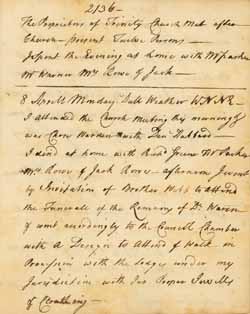 2136
The Proprietors of Trinity Church Met after
Church — Present Twelve Persons —
I spent the Evening at home with Mr Parker
Mr Warner Mrs Rowe & Jack —
8 Aprill Monday Dull Weather W.N.N.E.
I attended the Church Meeting this morning
was Chose Warden with Danl Hubbard —
I dind at home with Revd Green Mr Parker
Mrs Rowe & Jack Rowe — afternoon I went
by Invitation of Brother Webb to attend
the Funerall of the Remains of Dr Warren
& went accordingly to the Councill Chamber
with a Design to Attend & Walk in
Procession with the Lodges under my
Jurisdiction with Our Proper Jewells
& Cloathing —